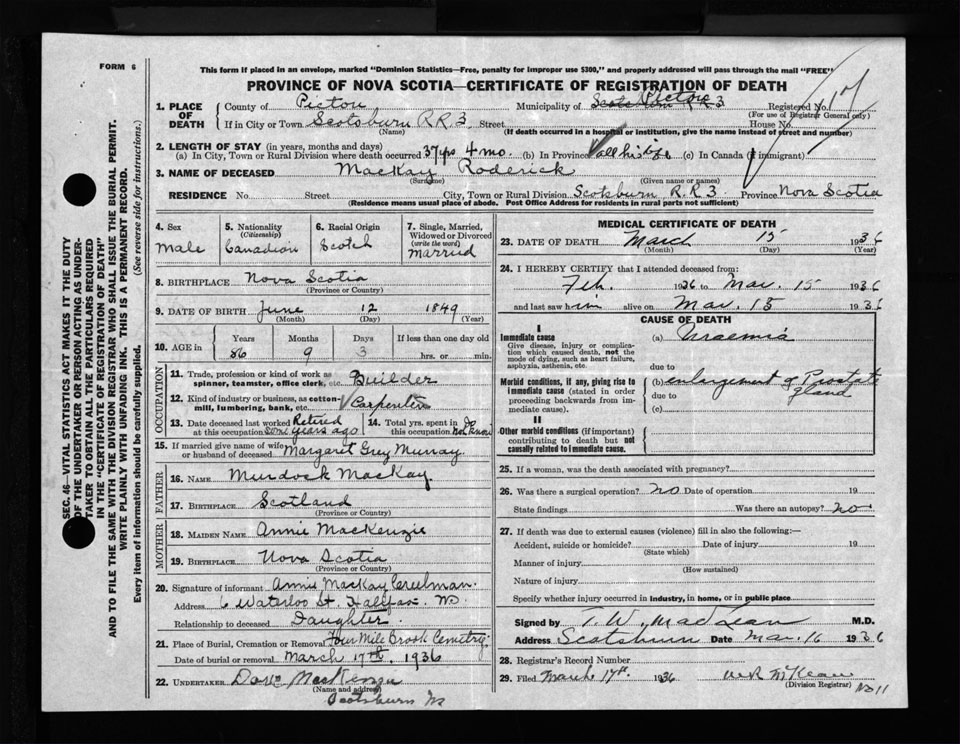 FORM 6
This form if placed in an envelope, marked "Dominion Statistics—Free, penalty for improper use $300," and properly addressed will pass through the mail "FREE"
PROVINCE OF NOVA SCOTIA—CERTIFICATE OF REGISTRATION OF DEATH
1. PLACE OF DEATH
County of Pictou Municipality of Pictou R R 3 Registered No.
(For use of Registrar General only)
If in City or Town Scotsburn R R 3 Street House No.
(Name) (If death occurred in a hospital or institution, give the name instead of street and number)
2. LENGTH OF STAY (in years, months and days)
(a) In City, Town or Rural Division where death occurred 37 yrs 4 mo. (b) In Province all his life (c) In Canada (if immigrant)
3. NAME OF DECEASED MacKay Roderick
(Surname) (Given name or names)
RESIDENCE No. Street City, Town or Rural Division Scotsburn R.R 3 Province Nova Scotia
(Residence means usual place of abode. Post Office Address for residents in rural parts not sufficient)
4. Sex
Male
5. Nationality (Citizenship)
Canadian
6. Racial Origin
Scotch
7. Single, Married, Widowed or Divorced (write the word)
Married
8. BIRTHPLACE Nova Scotia
(Province or Country)
9. DATE OF BIRTH June 12 1849
(Month) (Day) (Year)
10. AGE in Years Months Days If less than one day old
86 9 3 hrs. or min.
OCCUPATION
11. Trade, profession or kind of work as spinner, teamster, office clerk, etc. Builder
12. Kind of industry or business, as cotton-mill, lumbering, bank, etc. Carpenter
13. Date deceased last worked at this occupation Retired some years ago
14. Total yrs. spent in this occupation Do not know
15. If married give name of wife or husband of deceased Margaret Grey Murray
FATHER
16. NAME Murdock MacKay.
17. BIRTHPLACE Scotland
(Province or Country)
MOTHER
18. MAIDEN NAME Annie MacKenzie
19. BIRTHPLACE Nova Scotia
(Province or Country)
20. Signature of informant Annie MacKay Creelman.
Address 6 Waterloo St. Halifax. NS
Relationship to deceased Daughter.
21. Place of Burial, Cremation or Removal Four Mile Brook Cemetery.
Date of burial or removal March 17th, 1936
22. UNDERTAKER Dave MacKenzie
(Name and address)
Scotsburn NS
MEDICAL CERTIFICATE OF DEATH
23. DATE OF DEATH March 15 1936
(Month) (Day) (Year)
24. I HEREBY CERTIFY that I attended deceased from:
Feb. 1936 to Mar. 15 1936
and last saw him alive on Mar. 15 1936
CAUSE OF DEATH
I
Immediate cause
Give disease, injury or complication which caused death, not the mode of dying, such as heart failure, asphyxia, asthenia, etc.
(a) Uraemia
due to
Morbid conditions, if any, giving rise to immediate cause (stated in order proceeding backwards from immediate cause).
(b) enlargement of Prostate gland
due to
(c)
II
Other morbid conditions (if important) contributing to death but not causally related to immediate cause.
25. If a woman, was the death associated with pregnancy?
26. Was there a surgical operation? no Date of operation 19
State findings Was there an autopsy? no
27. If death was due to external causes (violence) fill in also the following:—
Accident, suicide or homicide? Date of injury 19
(State which)
Manner of injury
(How sustained)
Nature of injury
Specify whether injury occurred in industry, in home, or in public place
Signed by T. W. MacLean M.D.
Address Scotsburn Date Mar. 16 1936
28. Registrar's Record Number
29. Filed March 17th. 1936
(Division Registrar)
No 11
SEC. 46—VITAL STATISTICS ACT MAKES IT THE DUTY
OF THE UNDERTAKER OR PERSON ACTING AS UNDERTAKER TO OBTAIN ALL THE PARTICULARS REQUIRED
IN THE "CERTIFICATE OF REGISTRATION OF DEATH"
AND TO FILE THE SAME WITH THE DIVISION REGISTRAR WHO SHALL ISSUE THE BURIAL PERMIT.
WRITE PLAINLY WITH UNFADING INK. THIS IS A PERMANENT RECORD.
Every item of information should be carefully supplied. (See reverse side for instructions.)